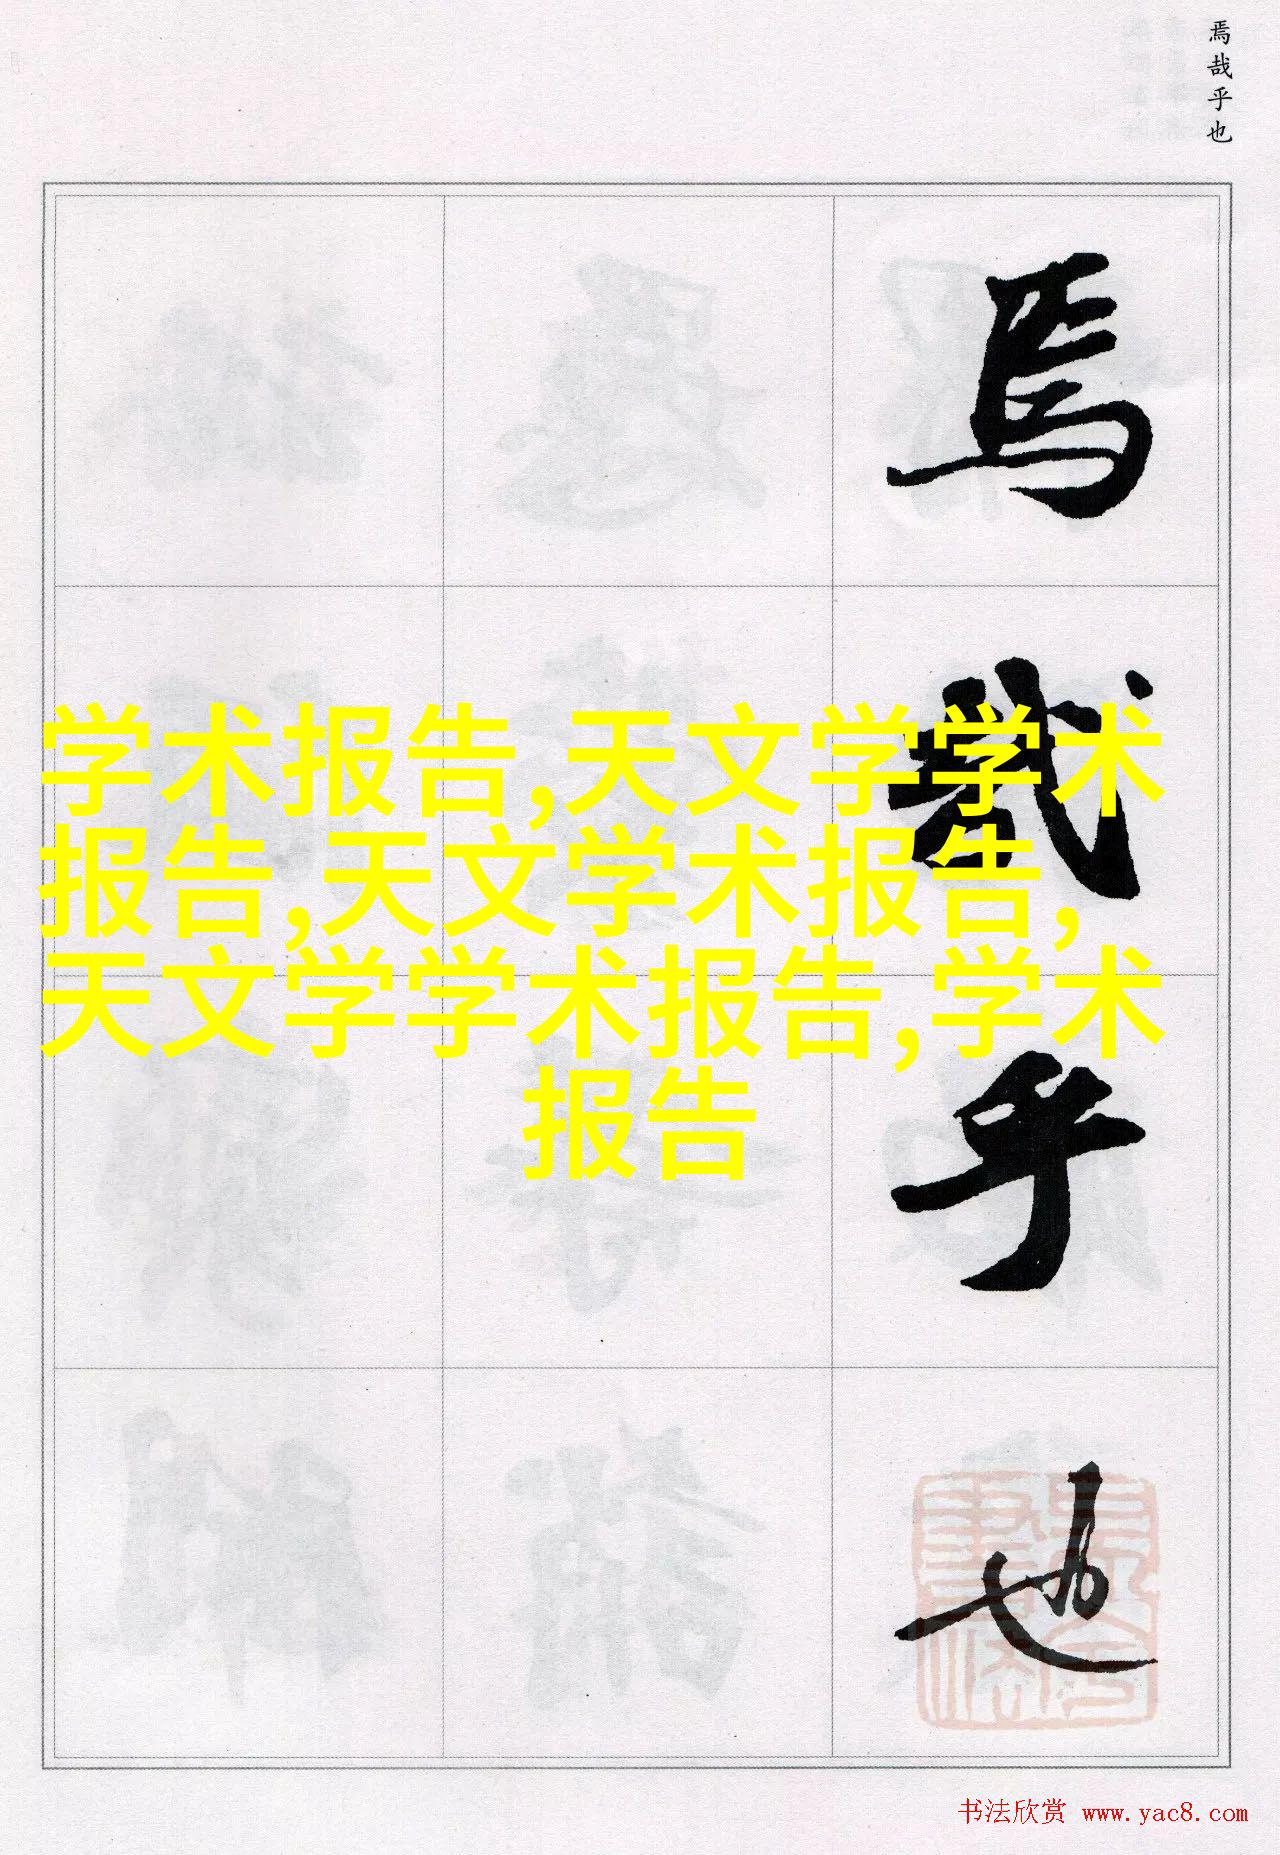 焉哉乎也
焉
哉
乎
也
学术报告,天文学学术
报告,天文学术报告,
天文学学术报告,学术
报告
书法欣赏 www.yac8.com